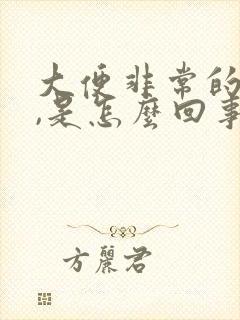 大便非常的
,是怎麼回事
方麗君